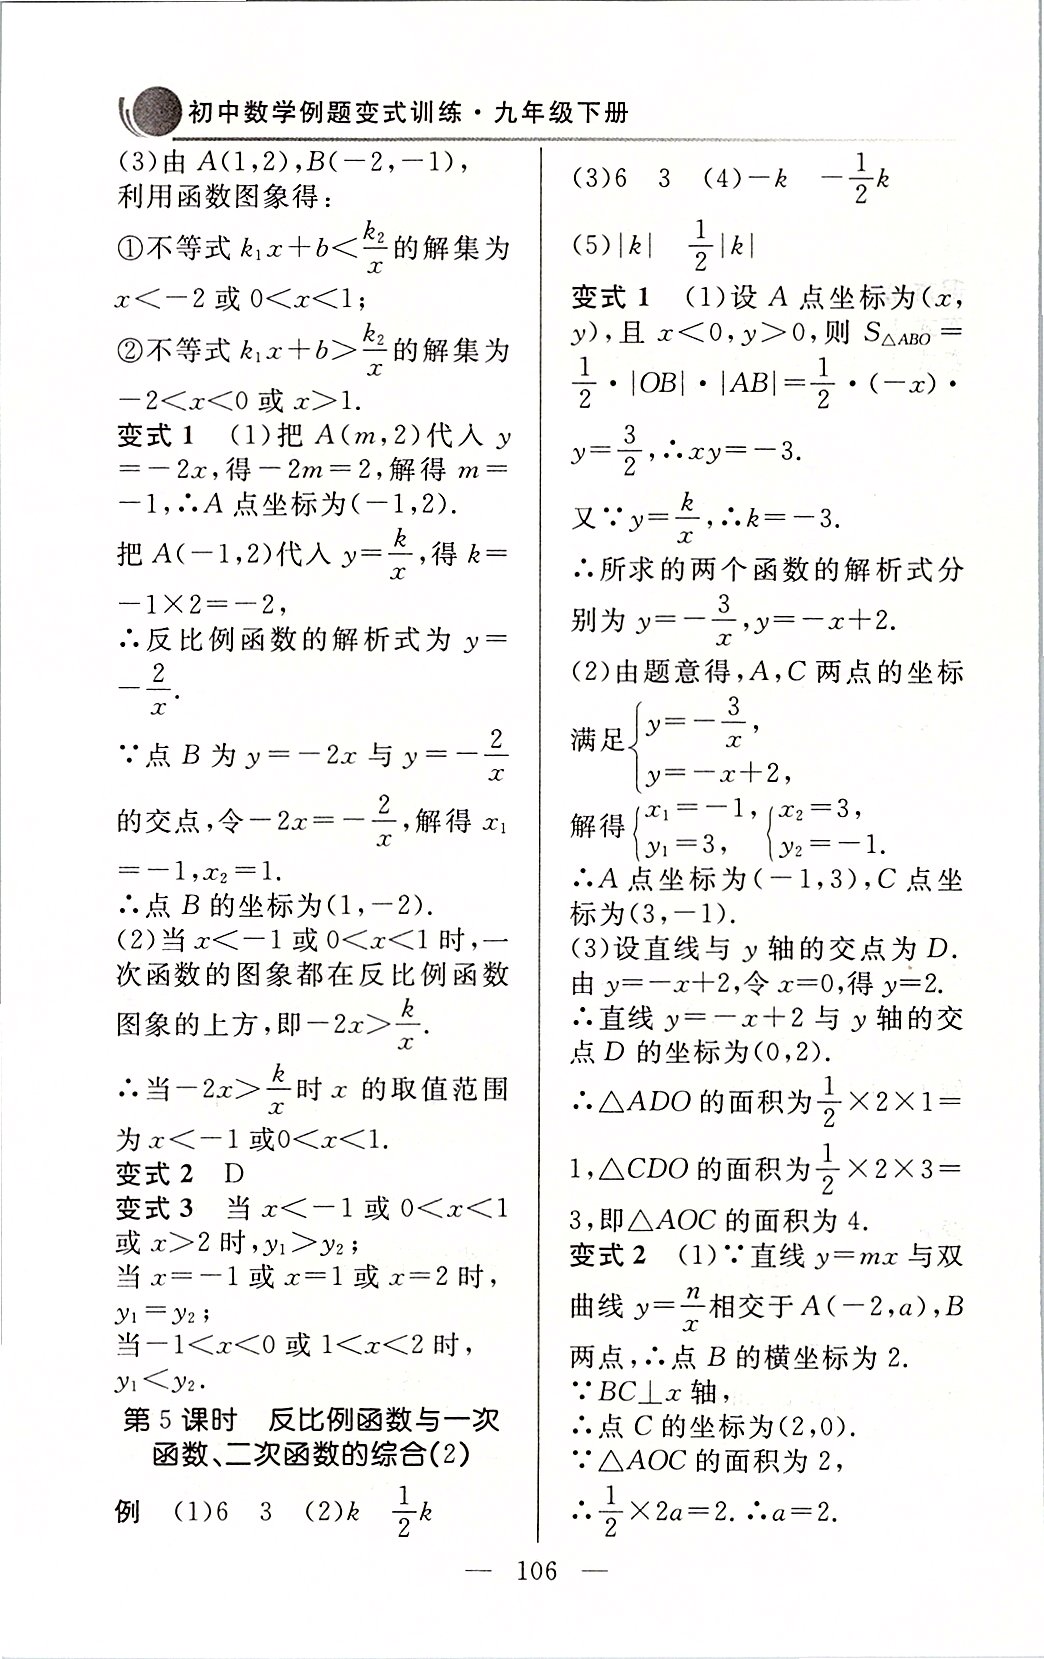 初中数学例题变式训练·九年级下册
(3)由 A(1,2),B(-2,-1),
利用函数图象得:
①不等式 k₁x+b<k₂/x的解集为
x<-2 或 0<x<1;
②不等式 k₁x+b>k₂/x的解集为
-2<x<0 或 x>1.
变式 1 (1)把 A(m,2)代入 y
=-2x,得-2m=2,解得 m=
-1,∴A 点坐标为(-1,2).
把 A(-1,2)代入 y=k/x,得 k=
-1×2=-2,
∴反比例函数的解析式为 y=
-2/x.
∵点 B 为 y=-2x 与 y=-2/x
的交点,令-2x=-2/x,解得 x₁
=-1,x₂=1.
∴点 B 的坐标为(1,-2).
(2)当 x<-1 或 0<x<1 时,一
次函数的图象都在反比例函数
图象的上方,即-2x>k/x.
∴当-2x>k/x时 x 的取值范围
为 x<-1 或0<x<1.
变式 2 D
变式 3 当 x<-1 或 0<x<1
或 x>2 时,y₁>y₂;
当 x=-1 或 x=1 或 x=2 时,
y₁=y₂;
当-1<x<0 或 1<x<2 时,
y₁<y₂.
第 5 课时 反比例函数与一次
函数、二次函数的综合(2)
例 (1)6 3 (2)k 1/2k
(3)6 3 (4)-k -1/2k
(5)|k| 1/2|k|
变式 1 (1)设 A 点坐标为(x,
y),且 x<0,y>0,则 S△ABO=
1/2·|OB|·|AB|=1/2·(-x)·
y=3/2,∴xy=-3.
又∵y=k/x,∴k=-3.
∴所求的两个函数的解析式分
别为 y=-3/x,y=-x+2.
(2)由题意得,A,C 两点的坐标
满足{y=-3/x,
y=-x+2,
解得{x₁=-1, {x₂=3,
y₁=3, y₂=-1.
∴A 点坐标为(-1,3),C 点坐
标为(3,-1).
(3)设直线与 y 轴的交点为 D.
由 y=-x+2,令 x=0,得 y=2.
∴直线 y=-x+2 与 y 轴的交
点 D 的坐标为(0,2).
∴△ADO 的面积为1/2×2×1=
1,△CDO 的面积为1/2×2×3=
3,即△AOC 的面积为 4.
变式 2 (1)∵直线 y=mx 与双
曲线 y=n/x相交于 A(-2,a),B
两点,∴点 B 的横坐标为 2.
∵BC⊥x 轴,
∴点 C 的坐标为(2,0).
∵△AOC 的面积为 2,
∴1/2×2a=2.∴a=2.
— 106 —